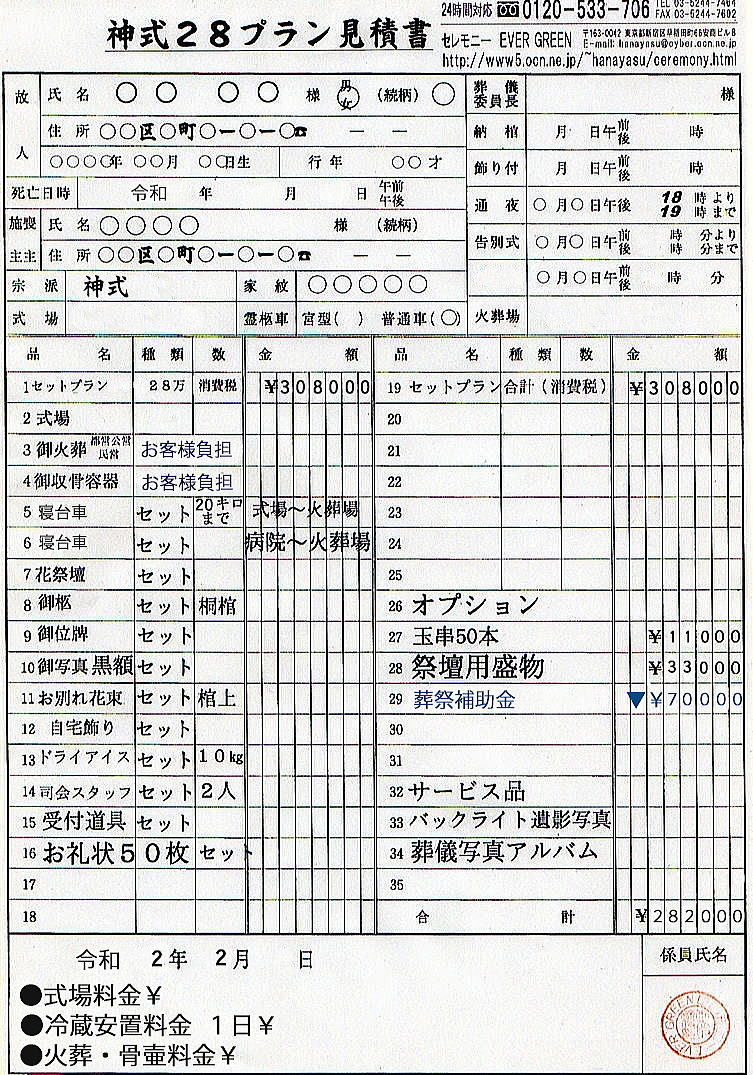 神式28プラン見積書
24時間対応 0120-533-706 TEL 03-5244-7464
FAX 03-5244-7602
セレモニー EVER GREEN 〒163-0042 東京都新宿区早稲田町66安商ビル8
E-mail: hanayasu@cyber.ocn.ne.jp
http://www5.ocn.ne.jp/~hanayasu/ceremony.html
故人 氏名 ○ ○ ○ ○ 様 男女 (続柄) ○
住所 ○○区○町○ー○ー○☎ ー ー
○○○○年 ○○月 ○○日生 行年 ○○才
死亡日時 令和 年 月 日 午前午後
施主 喪主 氏名 ○○○○ 様 (続柄)
住所 ○○区○町○ー○ー○☎ ー ー
宗派 神式 家紋 ○○○○○
式場 霊柩車 宮型( ) 普通車(○)
葬儀委員長 様
納棺 月 日午前後 時
飾り付 月 日午前後 時
通夜 ○月○日午後 18時より 19時まで
告別式 ○月○日午前後 時 分より 時 分まで
○月○日午前後 時 分
火葬場
品名 種類 数 金額 品名 種類 数 金額
1セットプラン 28万 消費税 ¥308000
2 式場
3 御火葬 都営公営民営 お客様負担
4 御収骨容器 お客様負担
5 寝台車 セット 20キロまで 式場〜火葬場
6 寝台車 セット 病院〜火葬場
7 花祭壇 セット
8 御柩 セット 桐棺
9 御位牌 セット
10 御写真 黒額 セット
11 お別れ花束 セット 棺上
12 自宅飾り セット
13 ドライアイス セット 10kg
14 司会スタッフ セット 2人
15 受付道具 セット
16 お礼状50枚 セット
17
18
19 セットプラン合計(消費税) ¥308000
20
21
22
23
24
25
26 オプション
27 玉串50本 ¥11000
28 祭壇用盛物 ¥33000
29 葬祭補助金 ▼¥70000
30
31
32 サービス品
33 バックライト遺影写真
34 葬儀写真アルバム
35
合計 ¥282000
令和 2年 2月 日
係員氏名
●式場料金¥
●冷蔵安置料金 1日¥
●火葬・骨壷料金¥
EVER GREEN